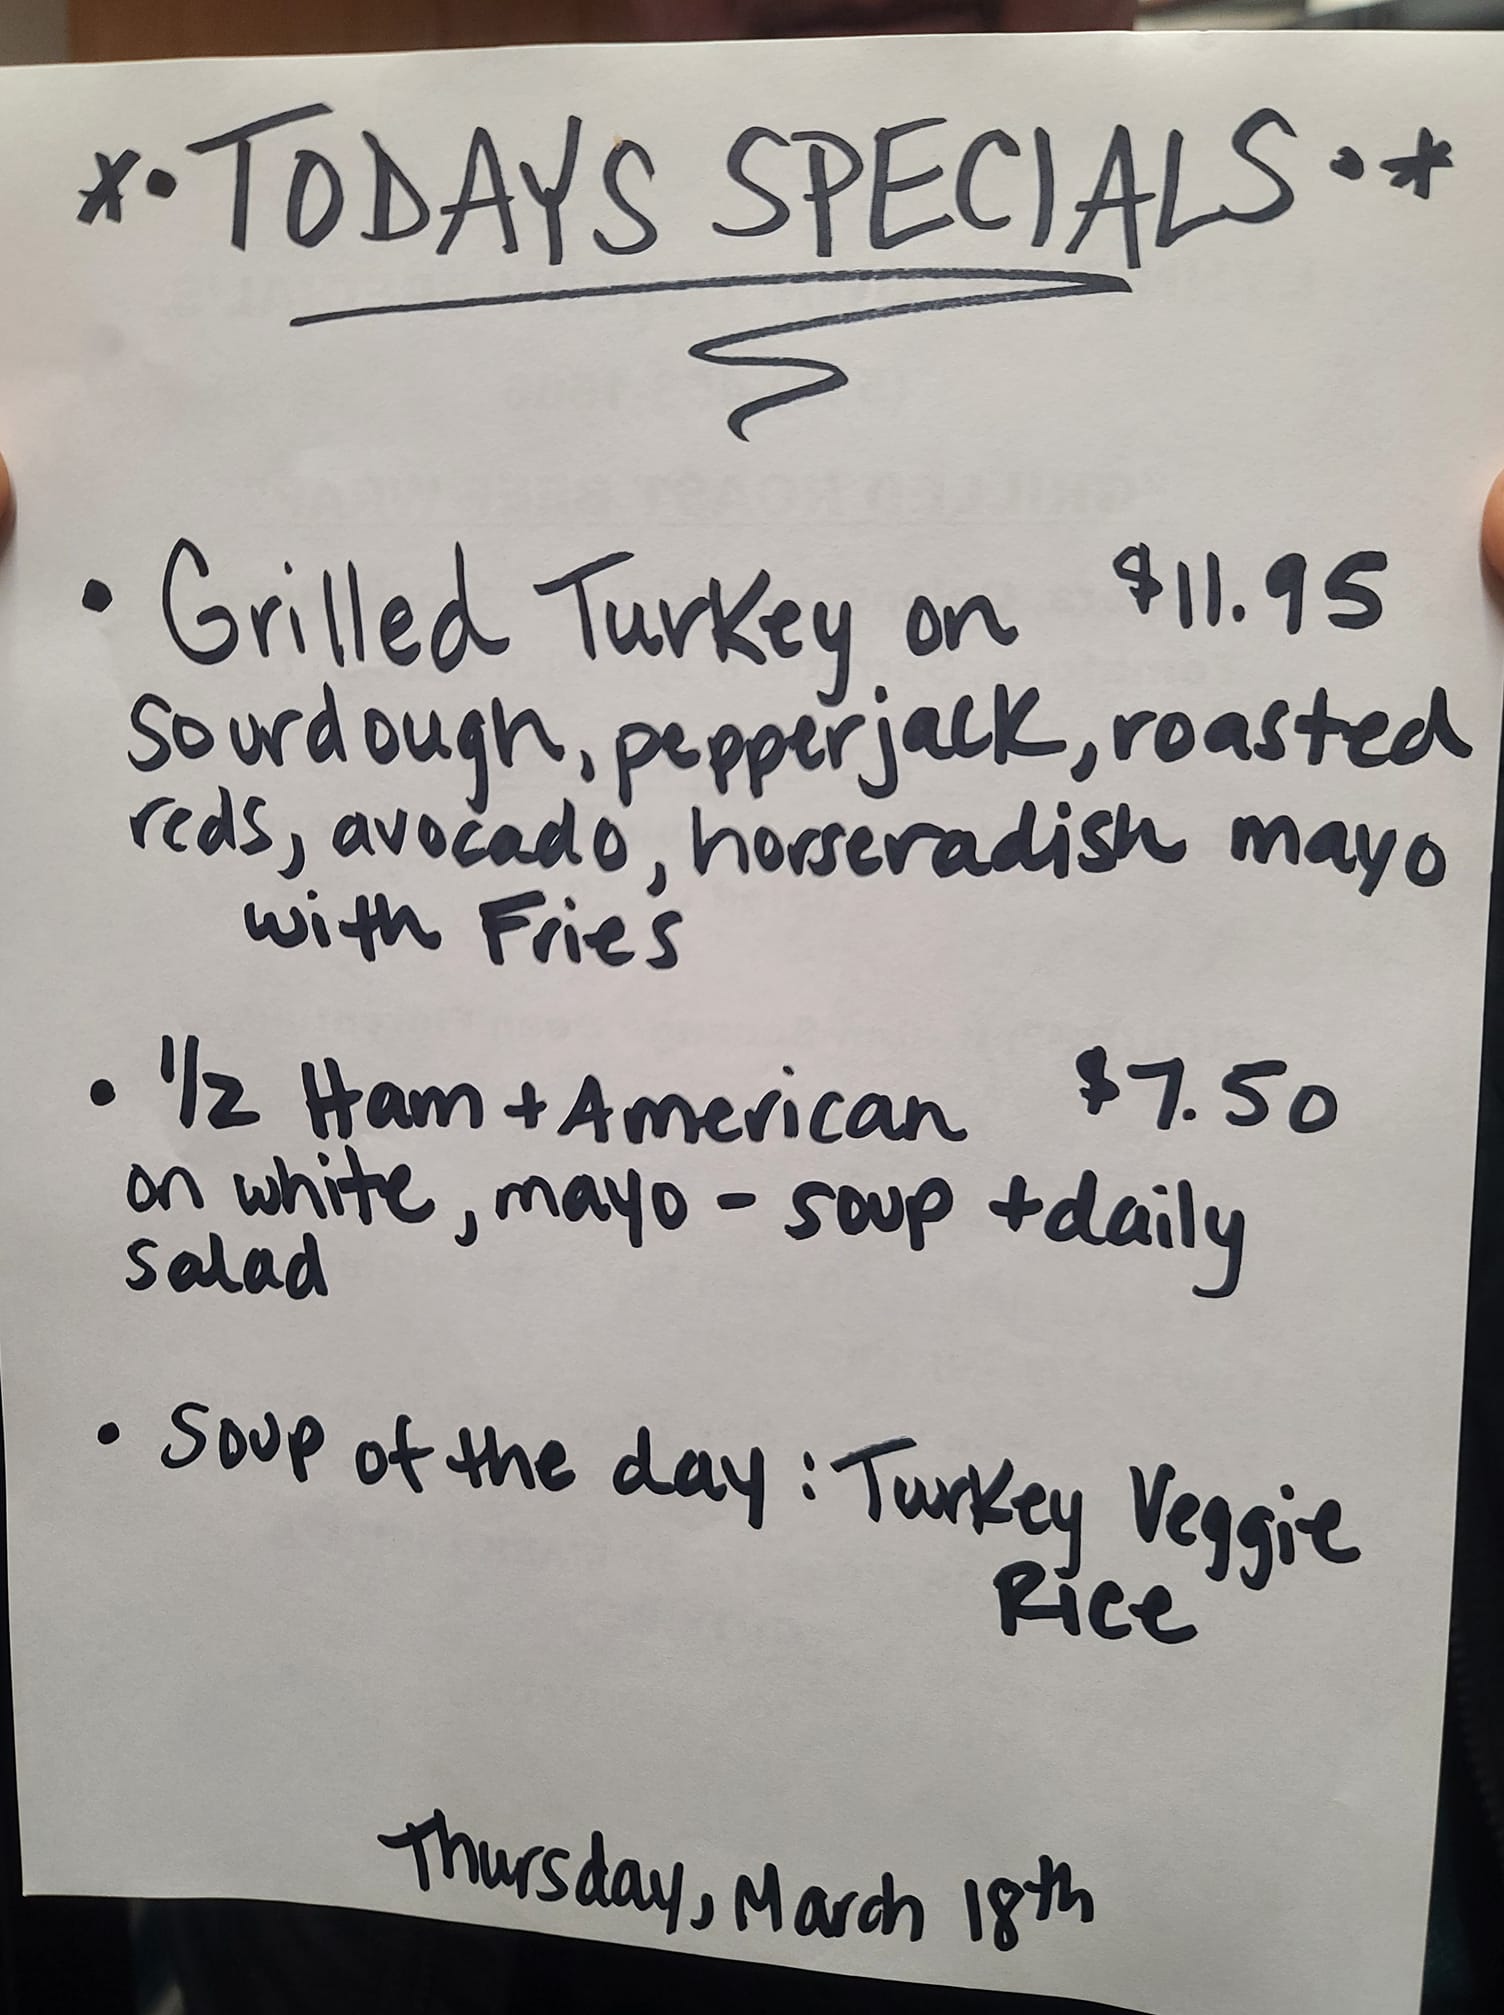 *• TODAYS SPECIALS •*
• Grilled Turkey on $11.95
sourdough, pepperjack, roasted
reds, avocado, horseradish mayo
with Fries
• 1/2 Ham + American $7.50
on white, mayo - soup + daily
salad
• Soup of the day : Turkey Veggie
Rice
Thursday, March 18th